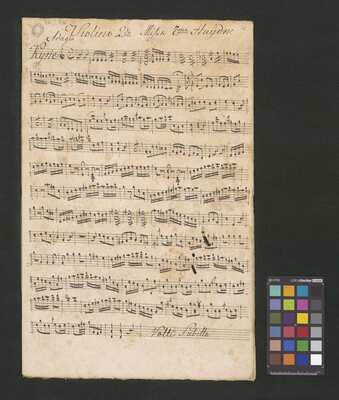 Violino 2do Missa Haydn
Adagio
Kyrie
Volti Subito